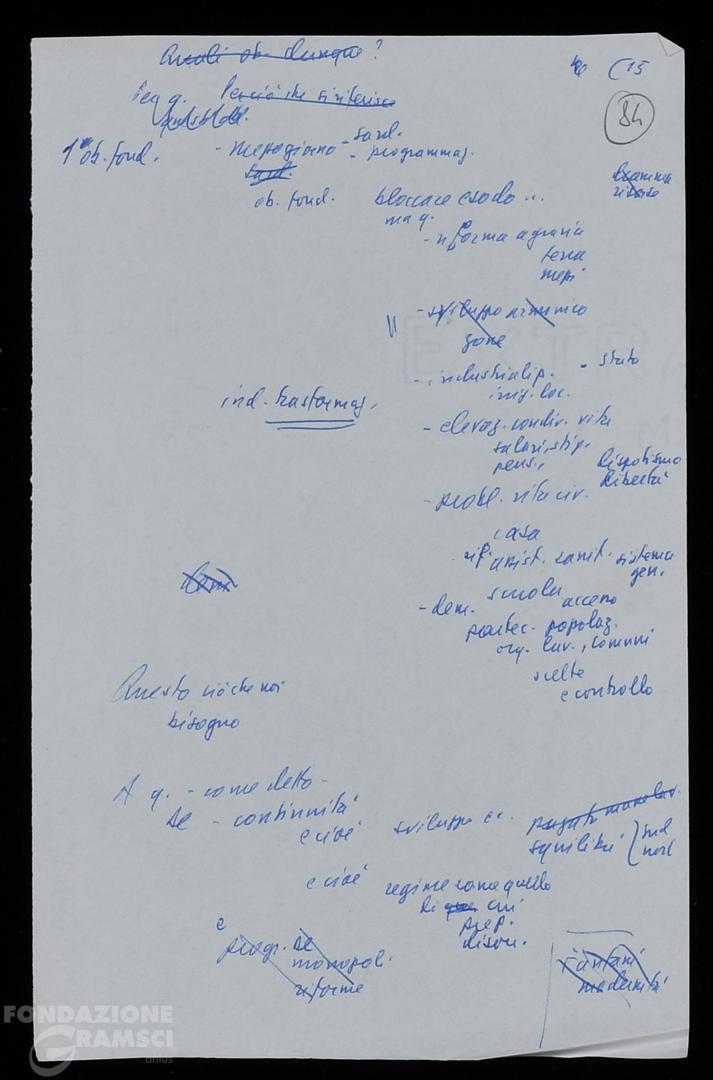 Quali ob. dunque?
(15
84
Perciò che si riferisce
1° ob. fond.
- mezzogiorno - sard.
- programmaz.
sard.
ob. fond. bloccare esodo ..
ma q.
- riforma agraria
terra
mezzi
- sviluppo armonico
zone
- industrializ. - stato
iniz. loc.
ind. trasformaz.
- elevaz. condiz. vita
salari, stip.
pens.,
dispotismo
libertà
- probl. vita civ.
casa
rif. assist. sanit. sistema
gen.
scuola
- dem. accesso
partec. popolaz.
org. lav., comuni
scelte
e controllo
Questo ciò che noi
bisogno
A q. - come detto -
se - continuità
e cioè sviluppo ec.
squilibri sud
nord
e cioè regime come quello
di cui
disoc.
e
progr. se
monopoli
riforme
modernità
FONDAZIONE
GRAMSCI
onlus